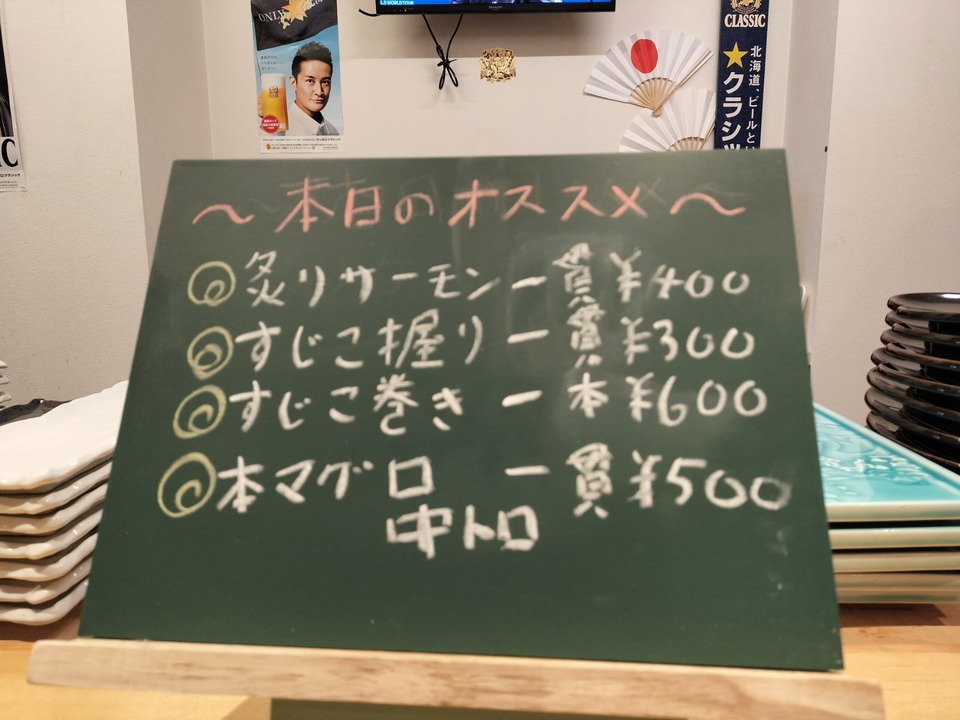 ONLY
CLASSIC
北海道、ビールとい
★クラシッ
～本日のオススメ～
◎炙りサーモン 一貫 ¥400
◎すじこ握り 一貫 ¥300
◎すじこ巻き 一本 ¥600
◎本マグロ 一貫 ¥500
中トロ